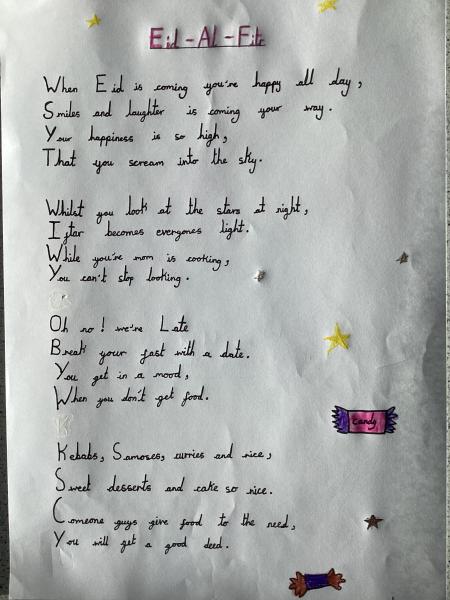 Eid-Al-Fitr
When Eid is coming you're happy all day,
Smiles and laughter is coming your way.
Your happiness is so high,
That you scream into the sky.
Whilst you look at the stars at night,
Iftar becomes everyones light.
While you're mom is cooking,
You can't stop looking.
Oh no! we're Late
Break your fast with a date.
You get in a mood,
When you don't get food.
Kebabs, Samoses, curries and rice,
Sweet desserts and cake so nice.
Comeone guys give food to the need,
You will get a good deed.
Candy